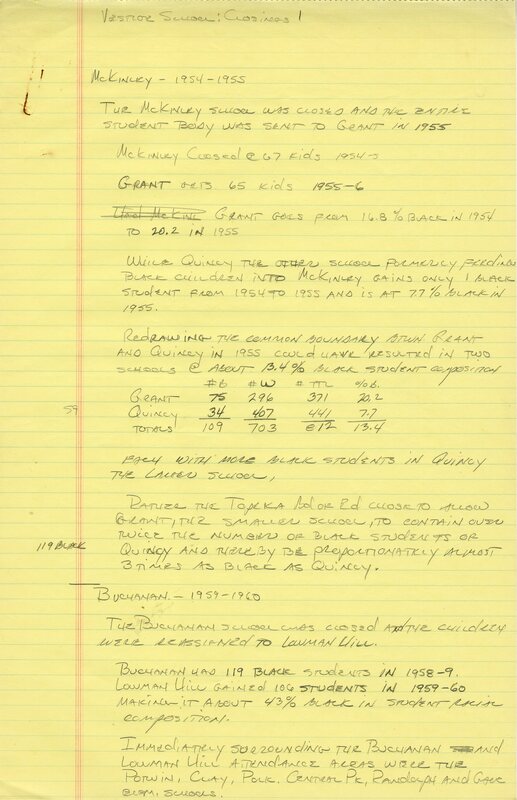 Vestige School: Closings 1
McKinley - 1954-1955
The McKinley school was closed and the entire
student body was sent to Grant in 1955
McKinley closed @ 67 kids 1954-5
Grant gets 65 kids 1955-6
Grant goes from 16.8% black in 1954
to 20.2 in 1955
While Quincy the other school formerly feeding
black children into McKinley gains only 1 black
student from 1954 to 1955 and is at 7.7% black in
1955.
Redrawing the common boundary btwn Grant
and Quincy in 1955 could have resulted in two
schools @ about 13.4% black student composition
#b #w #TTL %b.
Grant 75 296 371 20.2
59 Quincy 34 407 441 7.7
Totals 109 703 812 13.4
Each with more black students in Quincy
the larger school,
Rather the Topeka Bd of Ed chose to allow
Grant, the smaller school, to contain over
twice the number of black students of
119 Black Quincy and thereby be proportionately almost
3 times as black as Quincy.
Buchanan - 1959-1960
The Buchanan school was closed and the children
were reassigned to Lowman Hill.
Buchanan had 119 black students in 1958-9.
Lowman Hill gained 106 students in 1959-60
making it about 43% black in student racial
composition.
Immediately surrounding the Buchanan and
Lowman Hill attendance areas were the
Potwin, Clay, Polk, Central Pk, Randolph and Gage
elem. schools.